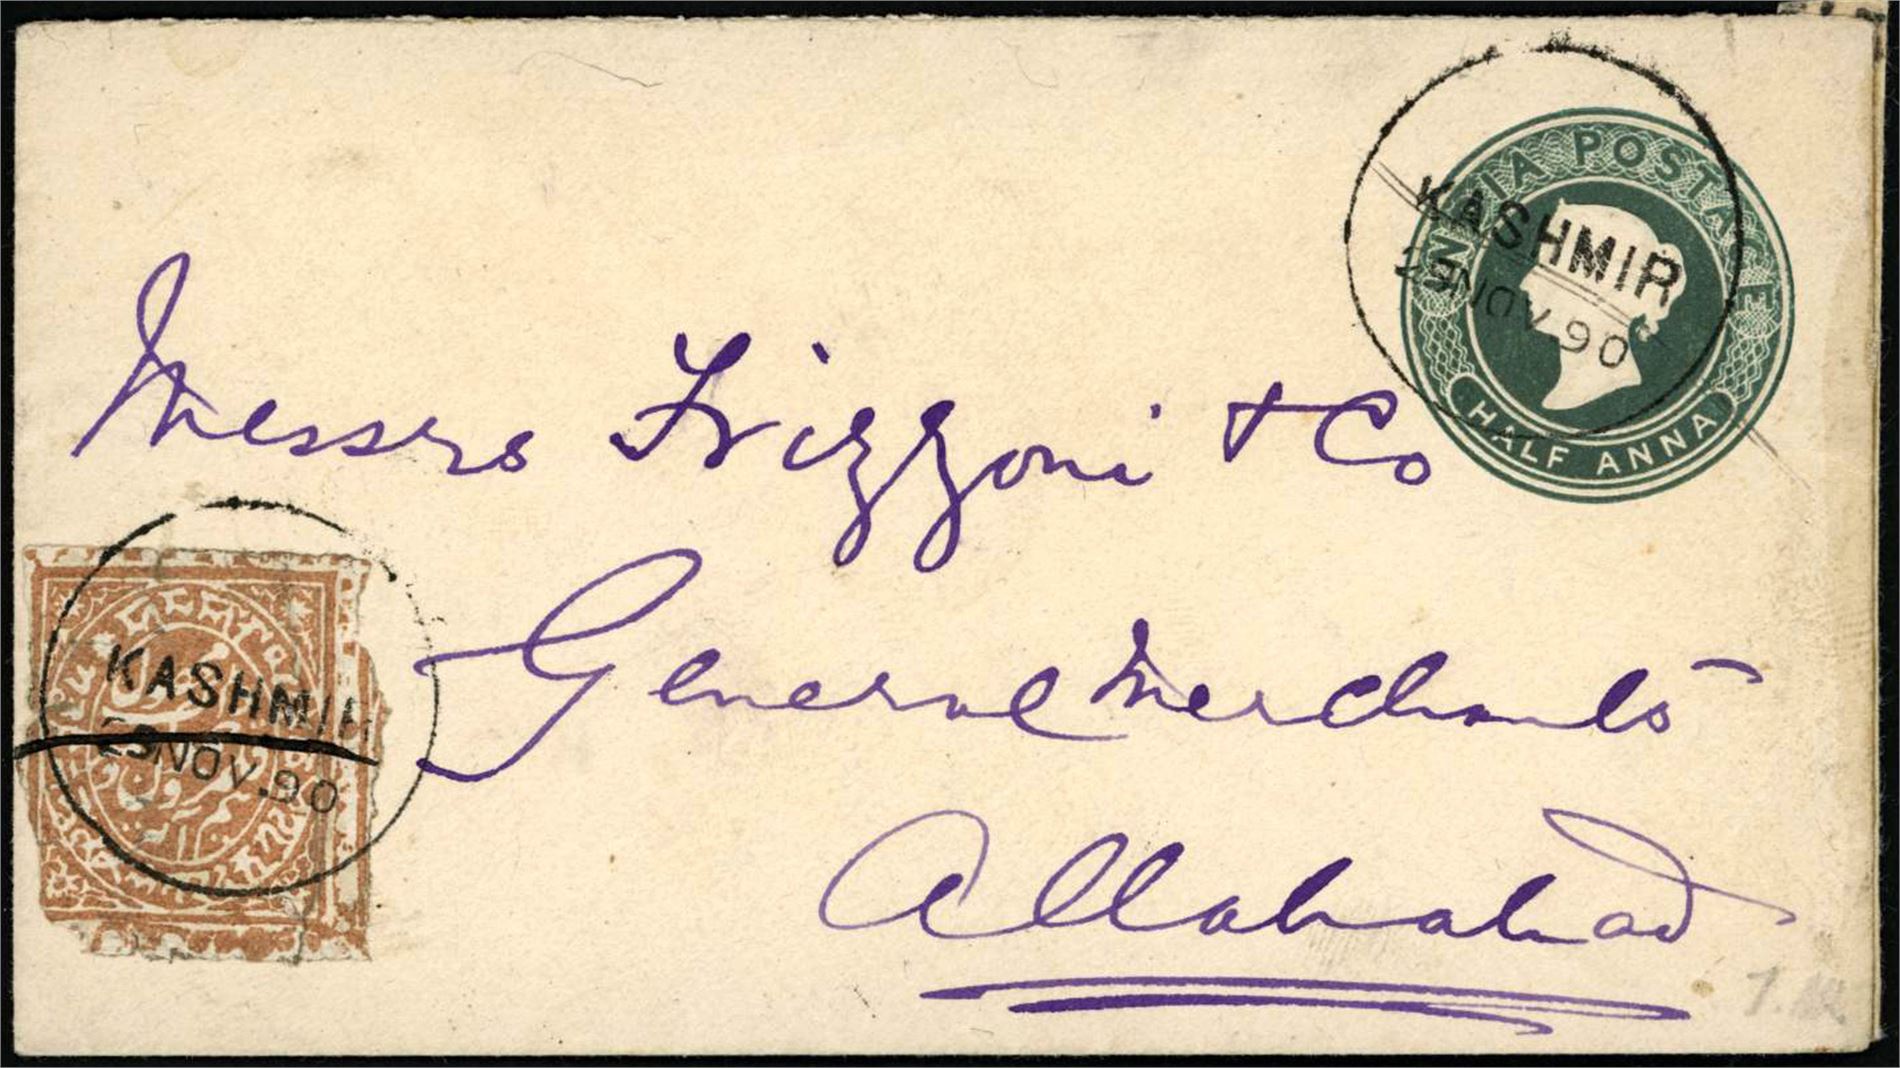 INDIA POSTAGE
KASHMIR
NOV.90
HALF ANNA
Messrs Frizzoni + Co
KASHMIR
NOV.90
General Merchants
Allahabad